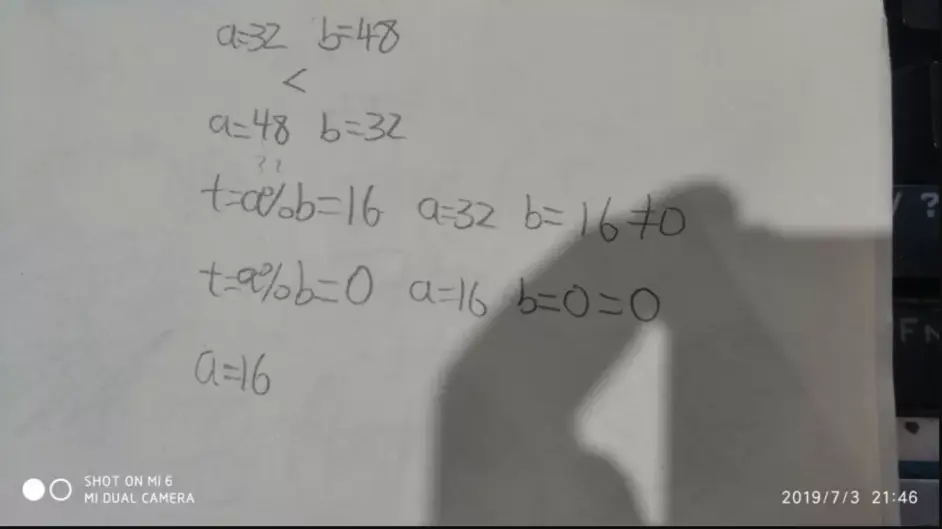 a=32 b=48
<
a=48 b=32
t=a%b=16 a=32 b=16≠0
t=a%b=0 a=16 b=0=0
a=16
?
FN
SHOT ON MI 6
MI DUAL CAMERA
2019/7/3 21:46